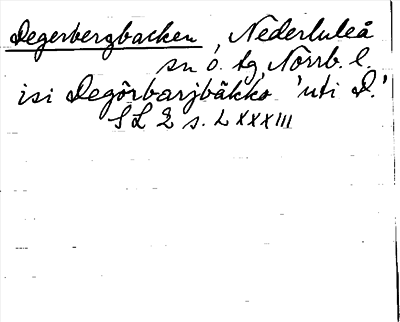 Degerbergbacken, Nederluleå
sn o. tg, Norrb. l.
isi Degôrbarjbäkko 'uti D.'
S L 2 s. LXXXIII